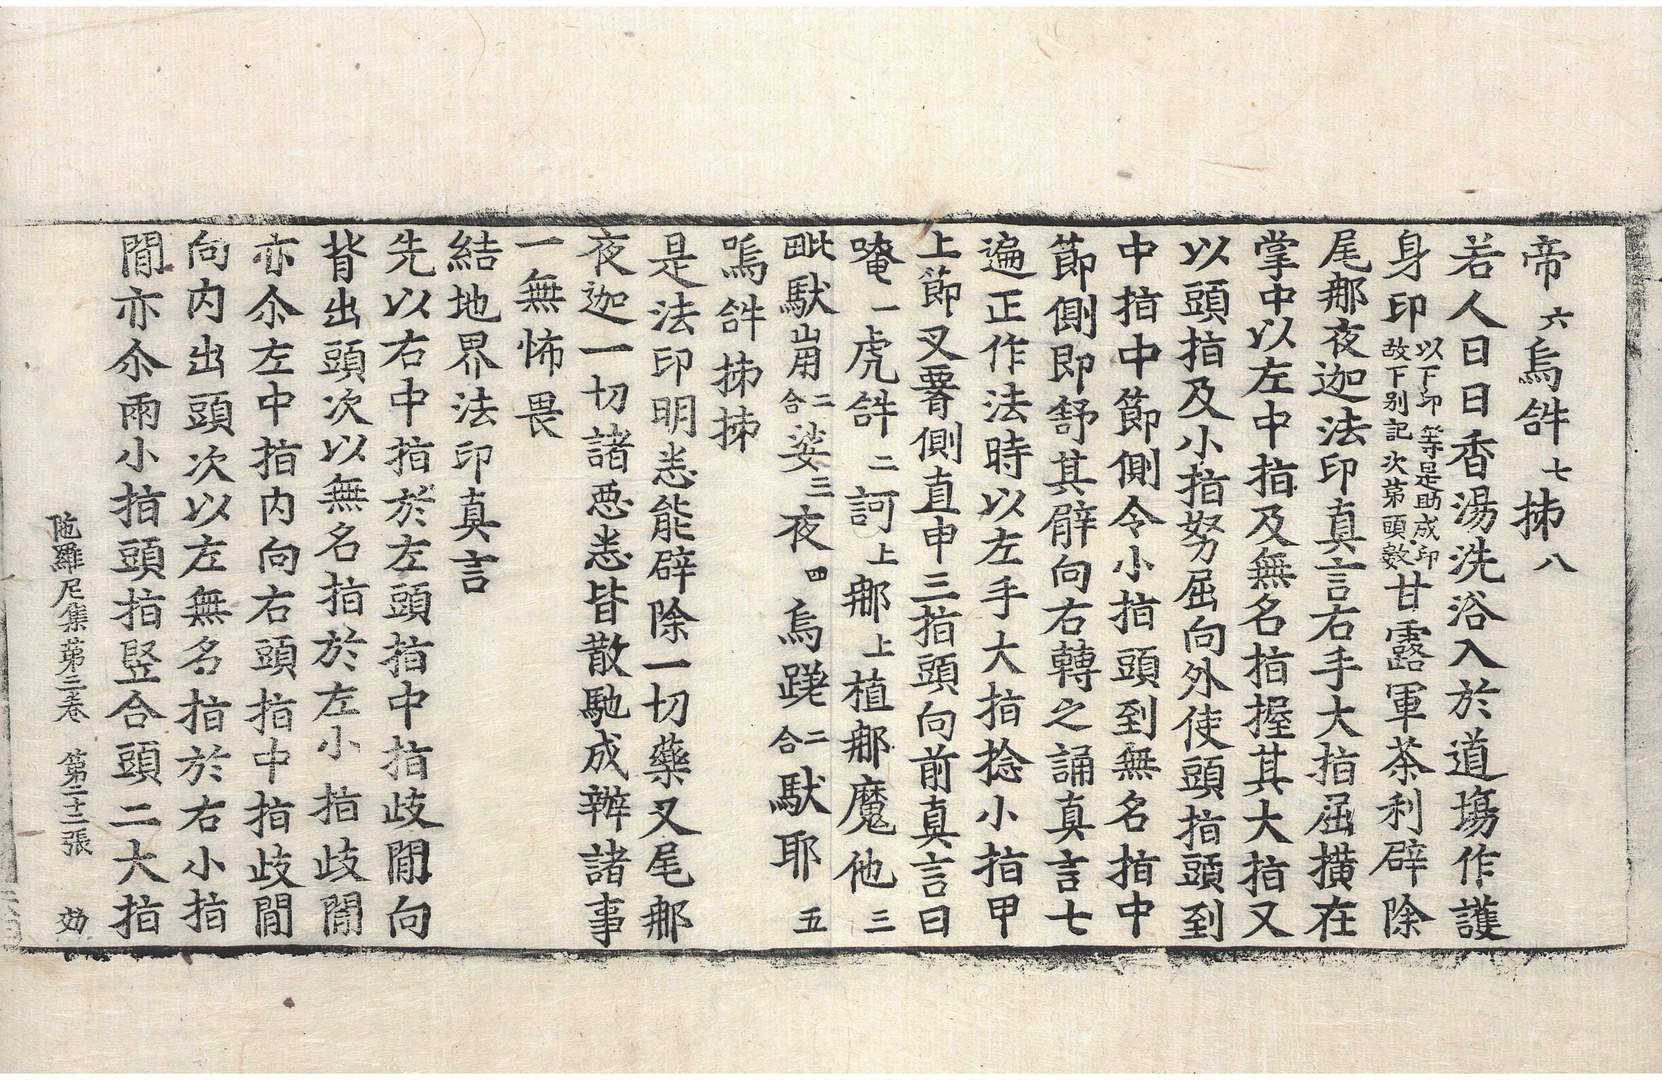 帝六烏𤙖七㧊八
若人日日香湯洗浴入於道場作護
身印以下印等是助成印故下别記次第頭數甘露軍茶利辟除
尾那夜迦法印真言右手大指屈撗在
掌中以左中指及無名指握其大指又
以頭指及小指努屈向外使頭指頭到
中指中節側令小指頭到無名指中
節側即舒其臂向右轉之誦真言七
遍正作法時以左手大指捻小指甲
上節叉䙲側直申三指頭向前真言曰
唵一虎𤙖二訶上那上植那魔他三
毗馱𡹘二合娑三夜四烏蹉二合馱耶五
嗚𤙖㧊㧊
是法印明悉能辟除一切藥叉尾那
夜迦一切諸惡悉皆散馳成辦諸事
一無怖畏
結地界法印真言
先以右中指於左頭指中指歧間向
背出頭次以無名指於左小指歧間
亦尒左中指内向右頭指中指歧間
向内出頭次以左無名指於右小指
間亦尒兩小指頭指竪合頭二大指
陁羅尼集苐三卷　第二十二張　効